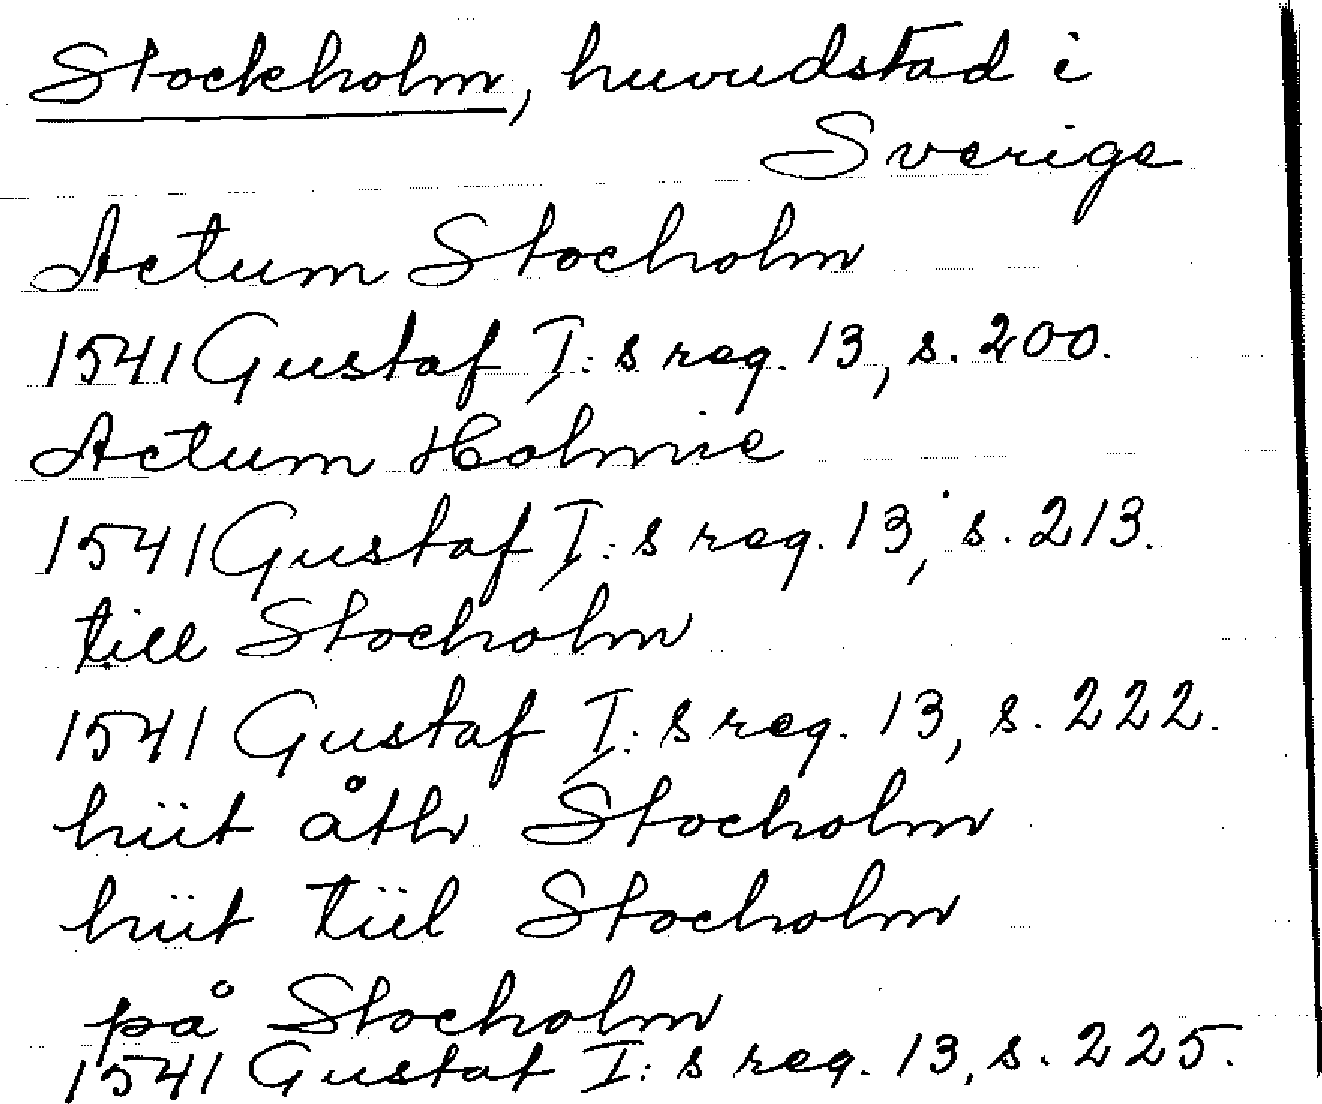 Stockholm, huvudstad i
Sverige
Actum Stocholm
1541 Gustaf I:s reg. 13, s. 200.
Actum Holmie
1541 Gustaf I:s reg. 13, s. 213.
till Stocholm
1541 Gustaf I:s reg. 13, s. 222.
hiit åthr Stocholm
hiit tiil Stocholm
på Stocholm
1541 Gustaf I:s reg. 13, s. 225.